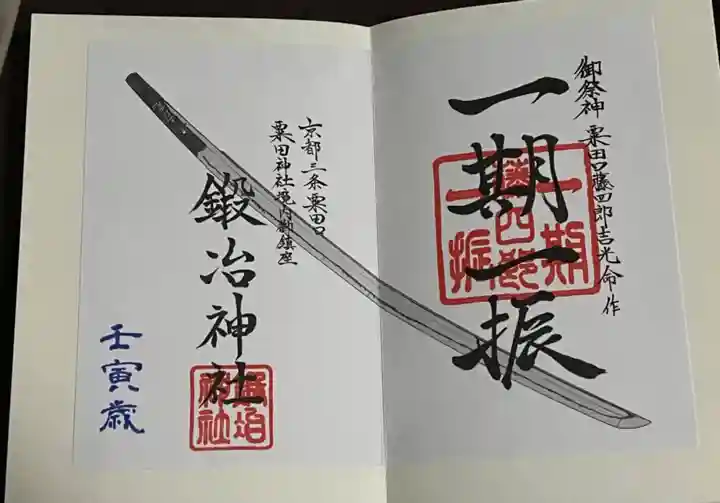 御祭神 粟田口藤四郎吉光命 作
一期一振
一期
藤四郎
一振
京都三条粟田口
粟田神社境内御鎮座
鍛冶神社
鍛冶
神社
壬寅歳